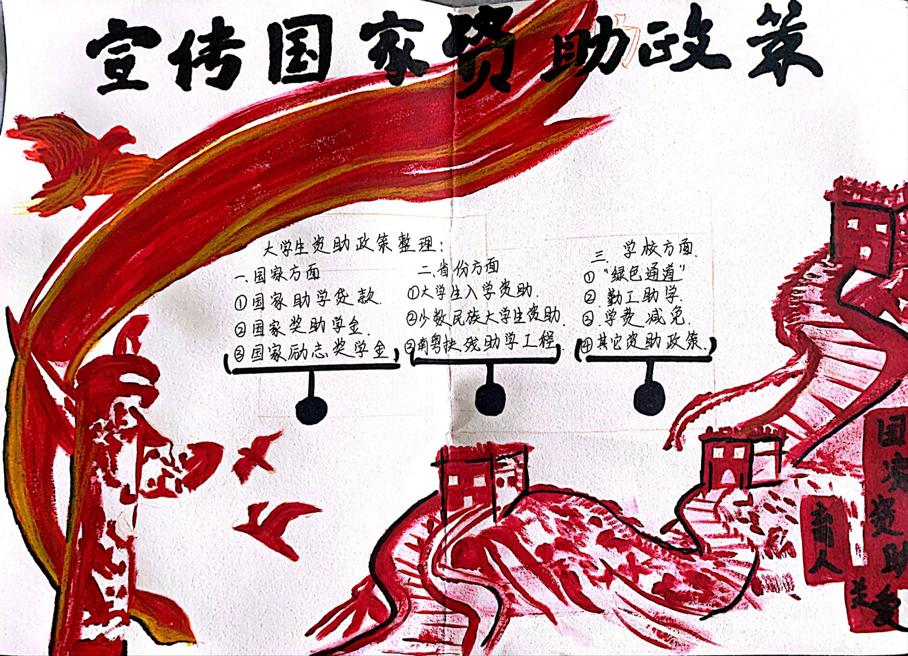 宣传国家资助政策
大学生资助政策整理:
一.国家方面
①国家助学贷款.
②国家奖助学金.
③国家励志奖学金.
二.省份方面
①大学生入学资助.
②少数民族大学生资助.
③南粤扶残助学工程
三.学校方面.
①“绿色通道”
②.勤工助学.
③.学费减免.
④其它资助政策.
国家资助
育人